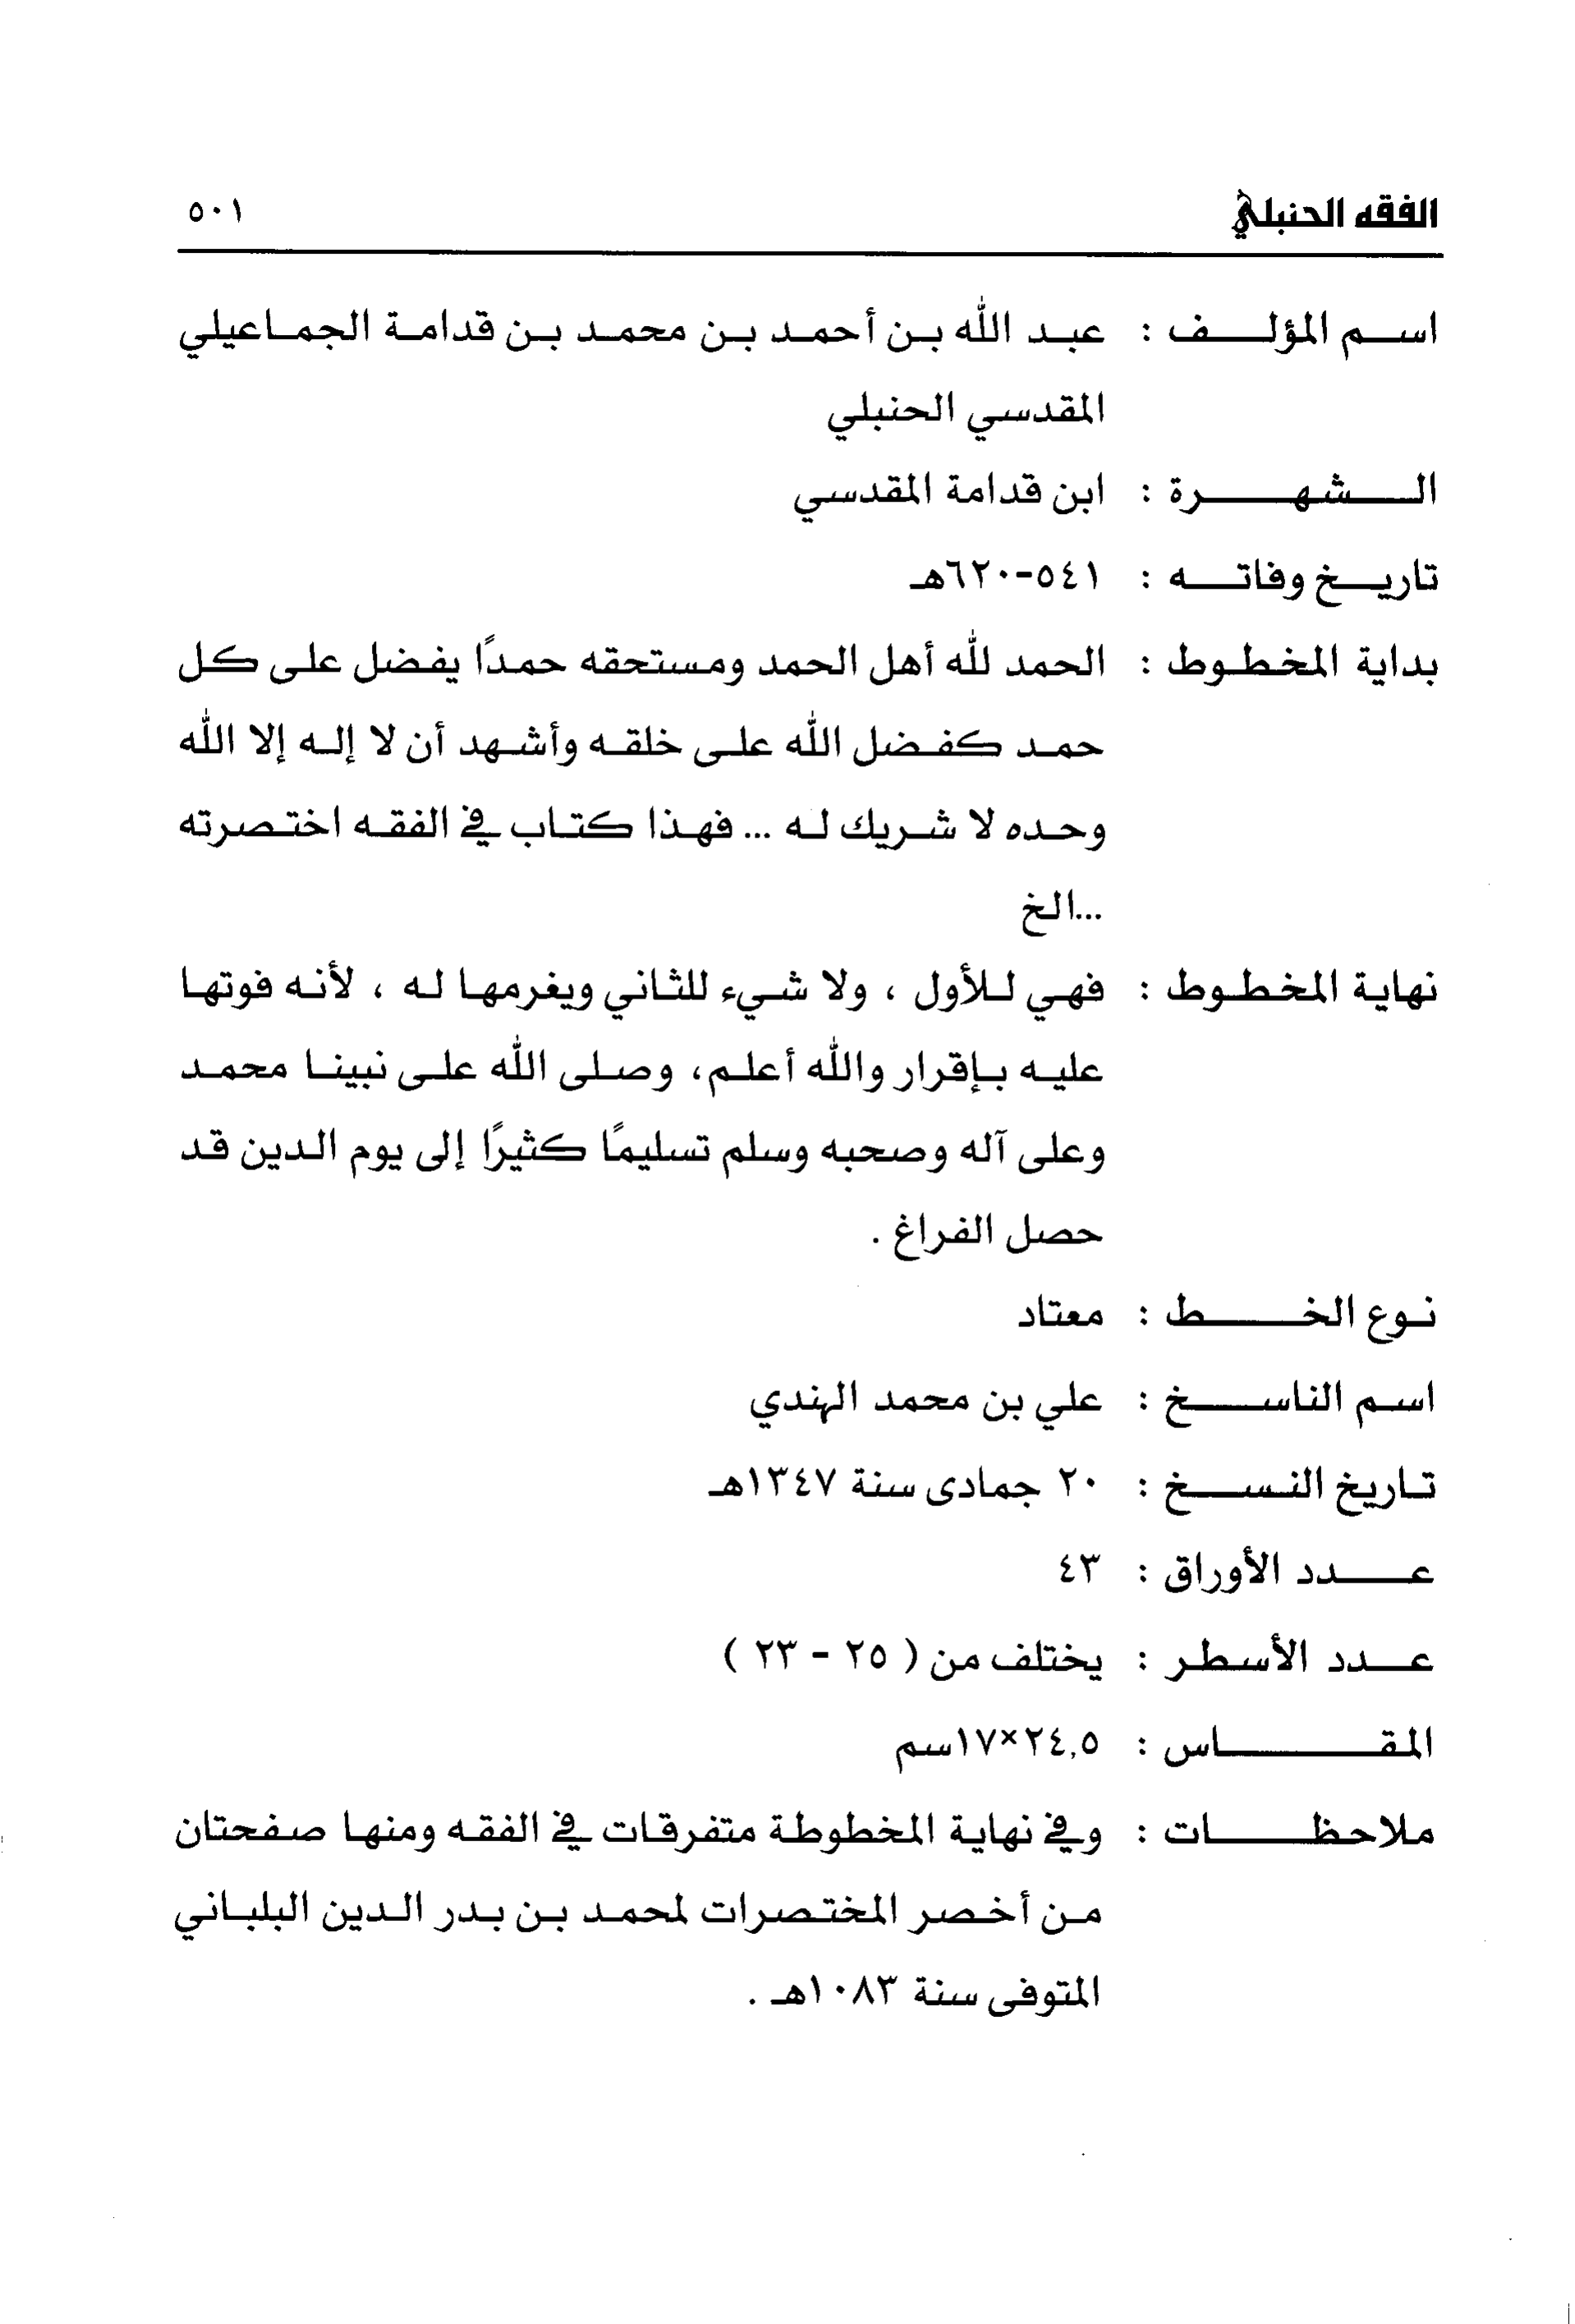 الفقه الحنبلي ٥٠١
اسم المؤلف : عبد الله بن أحمد بن محمد بن قدامة الجماعيلي
المقدسي الحنبلي
الشهرة : ابن قدامة المقدسي
تاريخ وفاته : ٥٤١-٦٢٠هـ
بداية المخطوط : الحمد لله أهل الحمد ومستحقه حمدًا يفضل على كل
حمد كفضل الله على خلقه وأشهد أن لا إله إلا الله
وحده لا شريك له ... فهذا كتاب في الفقه اختصرته
...الخ
نهاية المخطوط : فهي للأول ، ولا شيء للثاني ويغرمها له ، لأنه فوتها
عليه بإقرار والله أعلم، وصلى الله على نبينا محمد
وعلى آله وصحبه وسلم تسليمًا كثيرًا إلى يوم الدين قد
حصل الفراغ .
نوع الخط : معتاد
اسم الناسخ : علي بن محمد الهندي
تاريخ النسخ : ٢٠ جمادى سنة ١٣٤٧هـ
عدد الأوراق : ٤٣
عدد الأسطر : يختلف من ( ٢٥ - ٢٣ )
المقاس : ٢٤,٥×١٧سم
ملاحظات : وفي نهاية المخطوطة متفرقات في الفقه ومنها صفحتان
من أخصر المختصرات لمحمد بن بدر الدين البلباني
المتوفى سنة ١٠٨٣هـ .